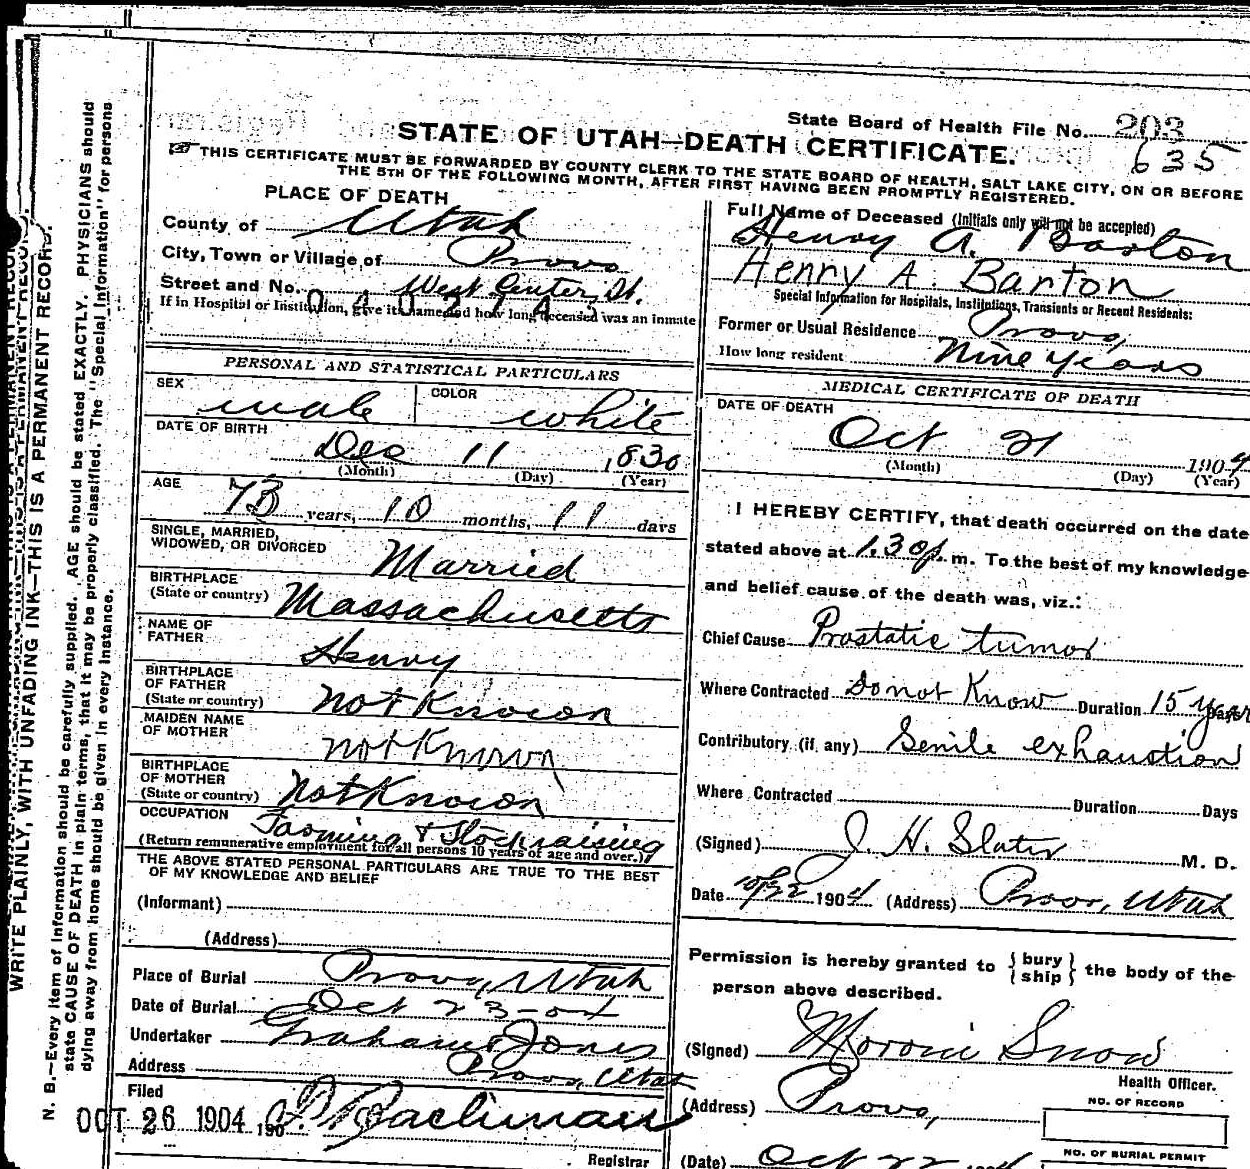 State Board of Health File No. 203
635
STATE OF UTAH—DEATH CERTIFICATE.
THIS CERTIFICATE MUST BE FORWARDED BY COUNTY CLERK TO THE STATE BOARD OF HEALTH, SALT LAKE CITY, ON OR BEFORE
THE 5TH OF THE FOLLOWING MONTH, AFTER FIRST HAVING BEEN PROMPTLY REGISTERED.
PLACE OF DEATH
County of Utah
City, Town or Village of Provo
Street and No. West Center St.
If in Hospital or Institution, give its name and how long deceased was an inmate
Full Name of Deceased (Initials only will not be accepted)
Henry A. Barton
Henry A. Barton
Special Information for Hospitals, Institutions, Transients or Recent Residents:
Former or Usual Residence Provo,
How long resident Nine years
PERSONAL AND STATISTICAL PARTICULARS
SEX male COLOR white
DATE OF BIRTH
Dec 11 1830
(Month) (Day) (Year)
AGE
73 years, 10 months, 11 days
SINGLE, MARRIED,
WIDOWED, OR DIVORCED Married
BIRTHPLACE
(State or country) Massachusetts
NAME OF
FATHER Henry
BIRTHPLACE
OF FATHER
(State or country) Not Known
MAIDEN NAME
OF MOTHER not Known
BIRTHPLACE
OF MOTHER
(State or country) Not Known
OCCUPATION Farming & Stockraising
(Return remunerative employment for all persons 10 years of age and over.)
THE ABOVE STATED PERSONAL PARTICULARS ARE TRUE TO THE BEST
OF MY KNOWLEDGE AND BELIEF
(Informant)
(Address)
Place of Burial Provo, Utah
Date of Burial Oct 23-04
Undertaker Graham & Jones
Address Provo, Utah
Filed
OCT 26 1904 190
Registrar
MEDICAL CERTIFICATE OF DEATH
DATE OF DEATH
Oct 21 1904
(Month) (Day) (Year)
I HEREBY CERTIFY, that death occurred on the date
stated above at 1.30 p. m. To the best of my knowledge
and belief cause of the death was, viz.:
Chief Cause Prostatic tumor
Where Contracted Do not Know Duration 15 years
Contributory (if any) Senile exhaustion
Where Contracted Duration Days
(Signed) J. H. Slater M. D.
Date 10/22 1904 (Address) Provo, Utah
Permission is hereby granted to { bury ship } the body of the
person above described.
(Signed) Moroni Snow
Health Officer.
(Address) Provo,
NO. OF RECORD
(Date) Oct 22 1904
NO. OF BURIAL PERMIT
WRITE PLAINLY, WITH UNFADING INK—THIS IS A PERMANENT RECORD.
N. B.—Every item of information should be carefully supplied. AGE should be stated EXACTLY. PHYSICIANS should
state CAUSE OF DEATH in plain terms, that it may be properly classified. The "Special Information" for persons
dying away from home should be given in every instance.